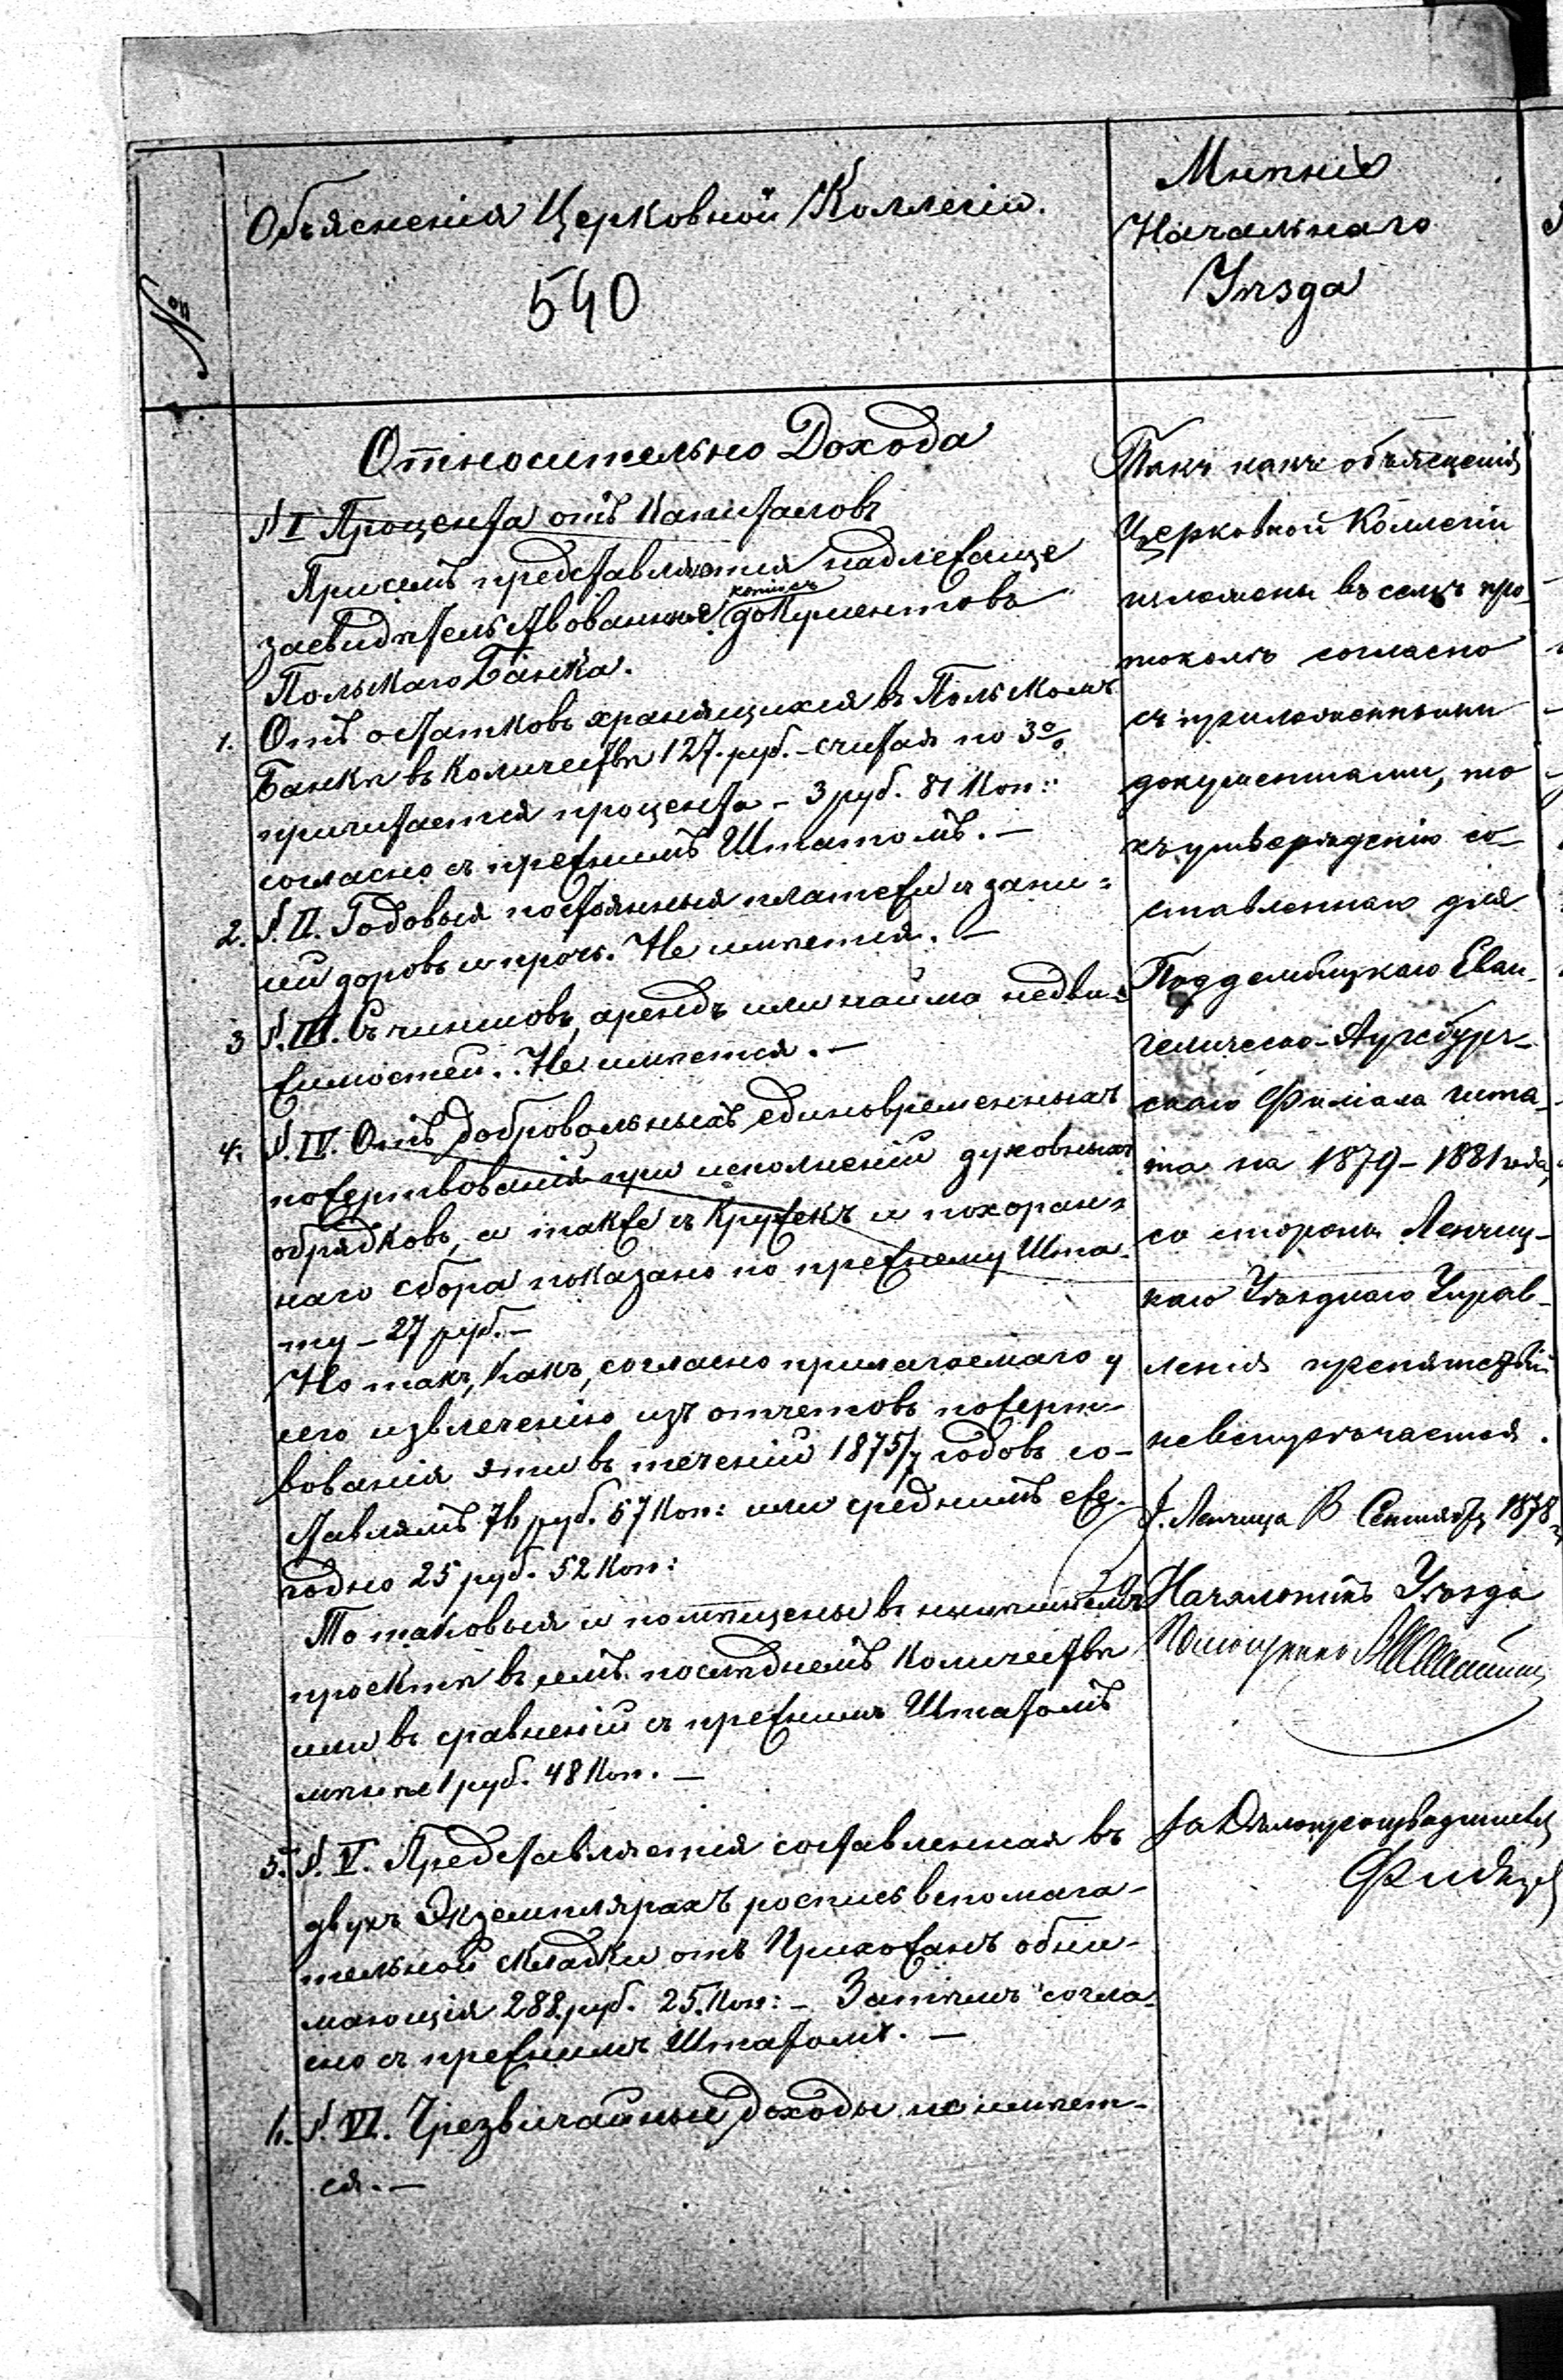 №
Объясненія Церковной Коллегіи.
540
Мнѣніе
Начальнаго
Уѣзда
Относительно Дохода
§ I Процента отъ Капиталовъ
Присемъ представляются надлежаще
копіи съ
завидѣтельствованные документовъ
Польскаго Банка.
1. Отъ остатковъ хранящихся въ Польскомъ
Банкѣ въ количествѣ 127. руб. – считая по 3%
причитается процента – 3 руб. 81 Коп:
согласно съ прежнимъ Штатомъ. –
2. §. II. Годовыя постоянныя платежи съ дани=
ни доровъ и проч. Не имѣется. –
3 §. III. Съ чиншовъ, арендъ или найма недви=
жимостей. Не имѣется. –
4. §. IV. Отъ добровольныхъ единовременныхъ
пожертвованій при исполненіи духовныхъ
обрядковъ, а также съ Кружекъ и похорон=
наго сбора показано по прежнему Шта-
ту – 27 руб. –
Но такъ, какъ, согласно прилагаемаго у
сего извлеченію изъ отчетовъ пожерт-
вованія эти въ теченіи 1875/7 годовъ со-
ставлямъ 76 руб. 57 Коп: или среднимъ еже-
годно 25 руб. 52 Коп:
То таковыя и помѣщены въ
проектѣ въ семъ послѣднемъ Количествѣ
или въ сравненіи съ прежнимъ Штатомъ
мѣнѣе 1 руб. 48 Коп. –
5. §. V. Представляется составленная въ
двухъ Экземплярахъ роспись вспомага-
тельной складки отъ Прихожанъ обни-
мающія 288. руб. 25. Коп: – Затѣмъ согла-
сно съ прежнимъ Штатомъ. –
6. §. VI. Чрезвичайные доходы не имѣет-
ся. –
Такъ какъ объясненія
Церковной Коллегіи
изложены въ семъ про-
токолѣ согласно
съ приложенными
документами, то
къ утвержденію со-
ставленнаго для
Поддембицкаго Еван-
гелическо-Аугсбург-
скаго Филіала шта-
та на 1879 – 1881 года,
со стороны Ленчиц-
каго Уѣзднаго Управ-
ленія препятствій
не встрѣчается.
Г. Ленчица Сентября 1878 г.
Начальникъ Уѣзда
За Дѣлопроизводителя